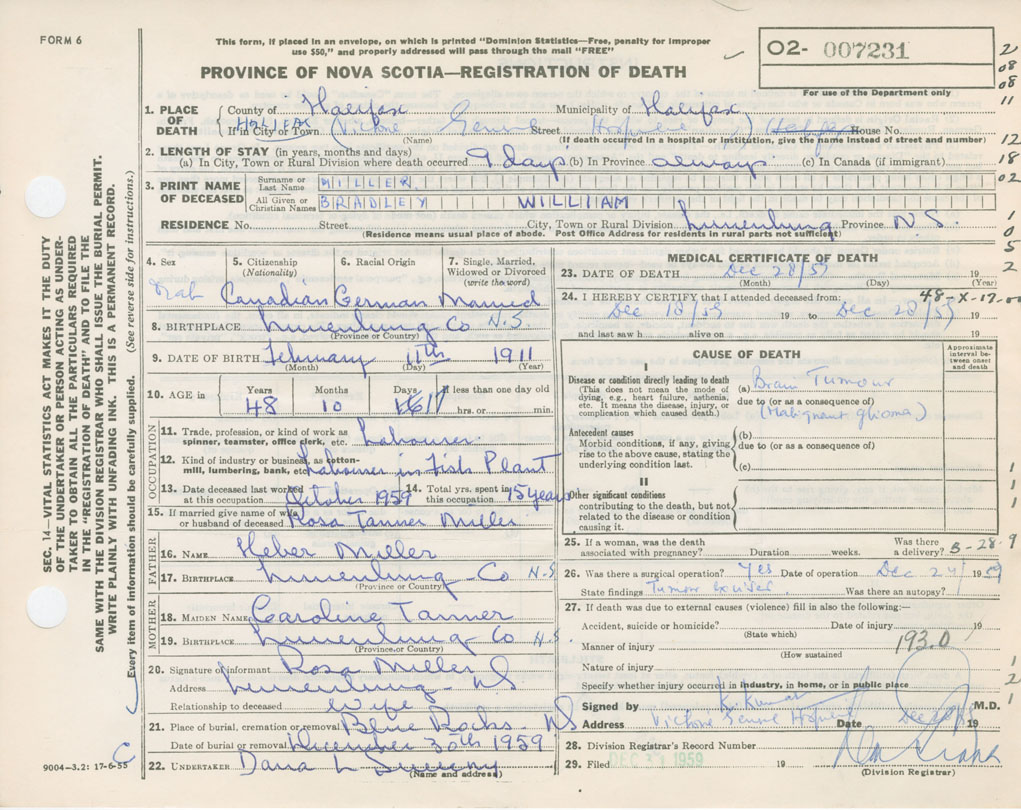 FORM 6
This form, if placed in an envelope, on which is printed "Dominion Statistics—Free, penalty for improper
use $50," and properly addressed will pass through the mail "FREE"
02- 007231
For use of the Department only
PROVINCE OF NOVA SCOTIA—REGISTRATION OF DEATH
2
08
08
11
12
18
02
1
0
5
2
1. PLACE OF DEATH
County of Halifax Municipality of Halifax
If in City or Town Halifax Street House No.
(Name) (If death occurred in a hospital or institution, give the name instead of street and number)
2. LENGTH OF STAY (in years, months and days)
(a) In City, Town or Rural Division where death occurred 9 days (b) In Province always (c) In Canada (if immigrant)
3. PRINT NAME OF DECEASED
Surname or Last Name MILLER
All Given or Christian Names BRADLEY WILLIAM
RESIDENCE No. Street City, Town or Rural Division Lunenburg Province N.S.
(Residence means usual place of abode. Post Office Address for residents in rural parts not sufficient)
4. Sex Male
5. Citizenship (Nationality) Canadian
6. Racial Origin German
7. Single, Married, Widowed or Divorced (write the word) Married
8. BIRTHPLACE Lunenburg Co N.S.
(Province or Country)
9. DATE OF BIRTH February 11th 1911
(Month) (Day) (Year)
10. AGE in
Years 48
Months 10
Days 17
If less than one day old
hrs. or min.
OCCUPATION
11. Trade, profession, or kind of work as spinner, teamster, office clerk, etc. Labourer
12. Kind of industry or business, as cotton-mill, lumbering, bank, etc. Labourer in Fish Plant
13. Date deceased last worked at this occupation October 1959
14. Total yrs. spent in this occupation 15 years
15. If married give name of wife or husband of deceased Rosa Tanner Miller
FATHER
16. NAME Heber Miller
17. BIRTHPLACE Lunenburg Co N.S
(Province or Country)
MOTHER
18. MAIDEN NAME Caroline Tanner
19. BIRTHPLACE Lunenburg Co N.S.
(Province or Country)
20. Signature of informant Rosa Miller
Address Lunenburg N.S
Relationship to deceased Wife
21. Place of burial, cremation or removal Blue Rocks NS
Date of burial or removal December 30th 1959
22. UNDERTAKER Dana L Sweeny
(Name and address)
MEDICAL CERTIFICATE OF DEATH
23. DATE OF DEATH Dec 28/59 19
(Month) (Day) (Year)
24. I HEREBY CERTIFY that I attended deceased from: 48-X-17-00
Dec 18/59 19 to Dec 28/59 19
and last saw h alive on 19
CAUSE OF DEATH
Approximate interval between onset and death
I
Disease or condition directly leading to death
(This does not mean the mode of dying, e.g., heart failure, asthenia, etc. It means the disease, injury, or complication which caused death.)
(a) Brain Tumour
due to (or as a consequence of)
(Malignant glioma)
Antecedent causes
Morbid conditions, if any, giving rise to the above cause, stating the underlying condition last.
(b)
due to (or as a consequence of)
(c)
II
Other significant conditions
contributing to the death, but not related to the disease or condition causing it.
1
1
1
25. If a woman, was the death associated with pregnancy? Duration weeks. Was there a delivery? 3-28-9
26. Was there a surgical operation? Yes Date of operation Dec 24/ 1959
State findings Tumour excised Was there an autopsy?
27. If death was due to external causes (violence) fill in also the following:—
Accident, suicide or homicide? Date of injury 19
(State which)
Manner of injury 193.0
(How sustained
Nature of injury
Specify whether injury occurred in industry, in home, or in public place
1
2
1
Signed by K. Kumar M.D.
Address Date
28. Division Registrar's Record Number
29. Filed DEC 31 1959 19
(Division Registrar)
SEC. 14—VITAL STATISTICS ACT MAKES IT THE DUTY
OF THE UNDERTAKER OR PERSON ACTING AS UNDER-
TAKER TO OBTAIN ALL THE PARTICULARS REQUIRED
IN THE "REGISTRATION OF DEATH" AND TO FILE THE
SAME WITH THE DIVISION REGISTRAR WHO SHALL ISSUE THE BURIAL PERMIT.
WRITE PLAINLY WITH UNFADING INK. THIS IS A PERMANENT RECORD.
Every item of information should be carefully supplied. (See reverse side for instructions.)
9004-3.2: 17-6-55